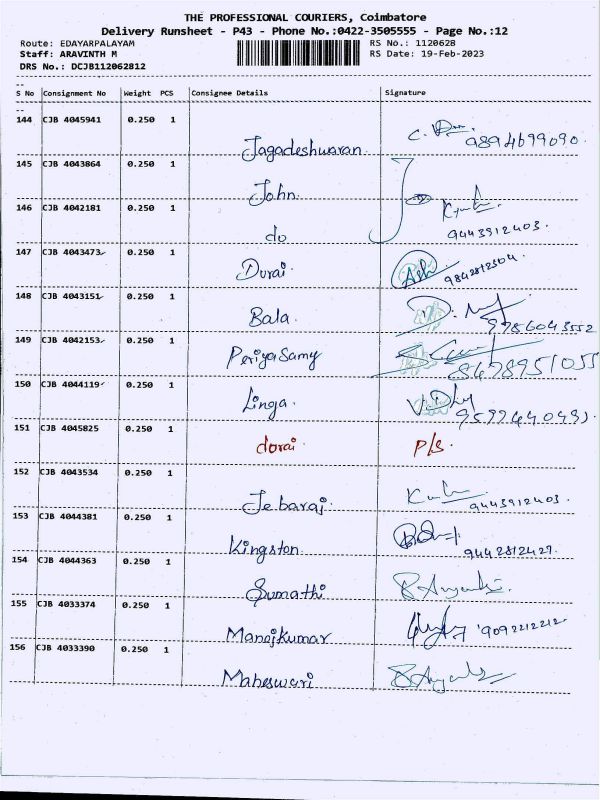 THE PROFESSIONAL COURIERS, Coimbatore
Delivery Runsheet - P43 - Phone No.:0422-3505555 - Page No.:12
Route: EDAYARPALAYAM RS No.: 1120628
Staff: ARAVINTH M RS Date: 19-Feb-2023
DRS No.: DCJB112062812
S No Consignment No Weight PCS Consignee Details Signature
144 CJB 4045941 0.250 1
Jagadeshwaran 9894699090.
145 CJB 4043864 0.250 1
John
146 CJB 4042181 0.250 1
do 9443912403.
147 CJB 4043473 0.250 1
Durai 9842812304.
148 CJB 4043151 0.250 1
Bala
149 CJB 4042153 0.250 1
PeriyaSamy 8478951055
150 CJB 4044119 0.250 1
Linga.
151 CJB 4045825 0.250 1
dorai P/S.
152 CJB 4043534 0.250 1
Jebaraj. 9443912403.
153 CJB 4044381 0.250 1
Kingston 9442812427.
154 CJB 4044363 0.250 1
Sumathi
155 CJB 4033374 0.250 1
Manojkumar 9092212212
156 CJB 4033390 0.250 1
Maheswari